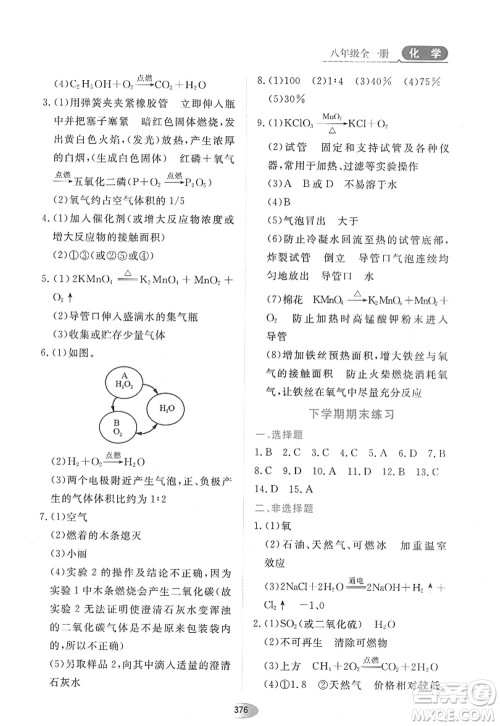 八年级全一册 化学
(4)C₂H₅OH+O₂ 点燃→ CO₂+H₂O
3.(1)用弹簧夹夹紧橡胶管 立即伸入瓶
中并把塞子塞紧 暗红色固体 燃烧
发出黄色火焰，(发光)放热，产生浓厚
的白烟(或生成白色固体) 红磷+氧气
点燃→五氧化二磷(P+O₂ 点燃→ P₂O₅)
(2)氧气约占空气体积的1/5
4.(1)加入催化剂(或增大反应物浓度或
增大反应物的接触面积)
(2)①③(或②③)
5.(1)2KMnO₄ △→ K₂MnO₄+MnO₂+
O₂↑
(2)导管口伸入盛满水的集气瓶
(3)收集或贮存少量气体
6.(1)如图。
A
H₂O₂
H₂O
B
O₂
(2)H₂+O₂ 点燃→ H₂O
(3)两个电极附近产生气泡，负极与正极
产生的气体体积比约为1∶2
7.(1)空气
(2)燃着的木条熄灭
(3)小丽
(4)实验2的操作与结论均不正确，因为
实验2中的木条燃烧会产生二氧化碳(或
实验1不正确，不能证明使澄清石灰水变浑浊
的二氧化碳气体是呼出的，所以实验1
也不正确)
(5)另取样品2，向其中滴入适量的澄清
石灰水
8.(1)100 (2)1∶4 (3)40% (4)75%
(5)30%
9.(1)KClO₃ MnO₂ △→ KCl+O₂↑
(2)试管 固定和支持试管及各种仪
器，可用于加热、过滤等实验操作
(3)A D 不易溶于水
(4)B
(5)冒出气泡
(6)防止冷凝水回流到热的试管底部，
炸裂试管 倒立 导管口气泡连续均
匀地放出 H
(7)棉花 KMnO₄ △→ K₂MnO₄+MnO₂
+O₂↑ 防止加热时高锰酸钾粉末进入
导管
(8)增加铁丝预热面积，增大铁丝与氧
气的接触面积 防止火柴燃烧消耗氧
气，让铁丝在氧气中尽量充分反应
下学期期末练习
一、选择题
1.B 2.C 3.D 4.C 5.D 6.B 7.B
8.C 9.C 10.D 11.B 12.C 13.C
14.D 15.A
二、非选择题
1.(1)氧
(2)石油、天然气、可燃冰 加重温室
效应
(3)2NaCl+2H₂O 通电→ 2NaOH+H₂↑+
Cl₂↑ −1、0
2.(1)SO₂(或二氧化硫)
(2)不可再生 可燃物与氧气接触
(3)上方 CH₄+2O₂ 点燃→ CO₂+2H₂O
(4)①1.8 ②天然气价格相对较低。
376